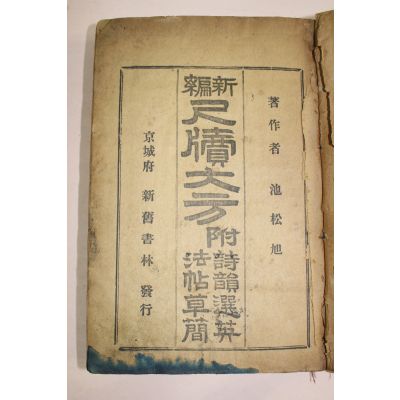 著作者 池松旭
新編
尺牘大方
附 詩韻選英
法帖草簡
京城府 新舊書林 發行